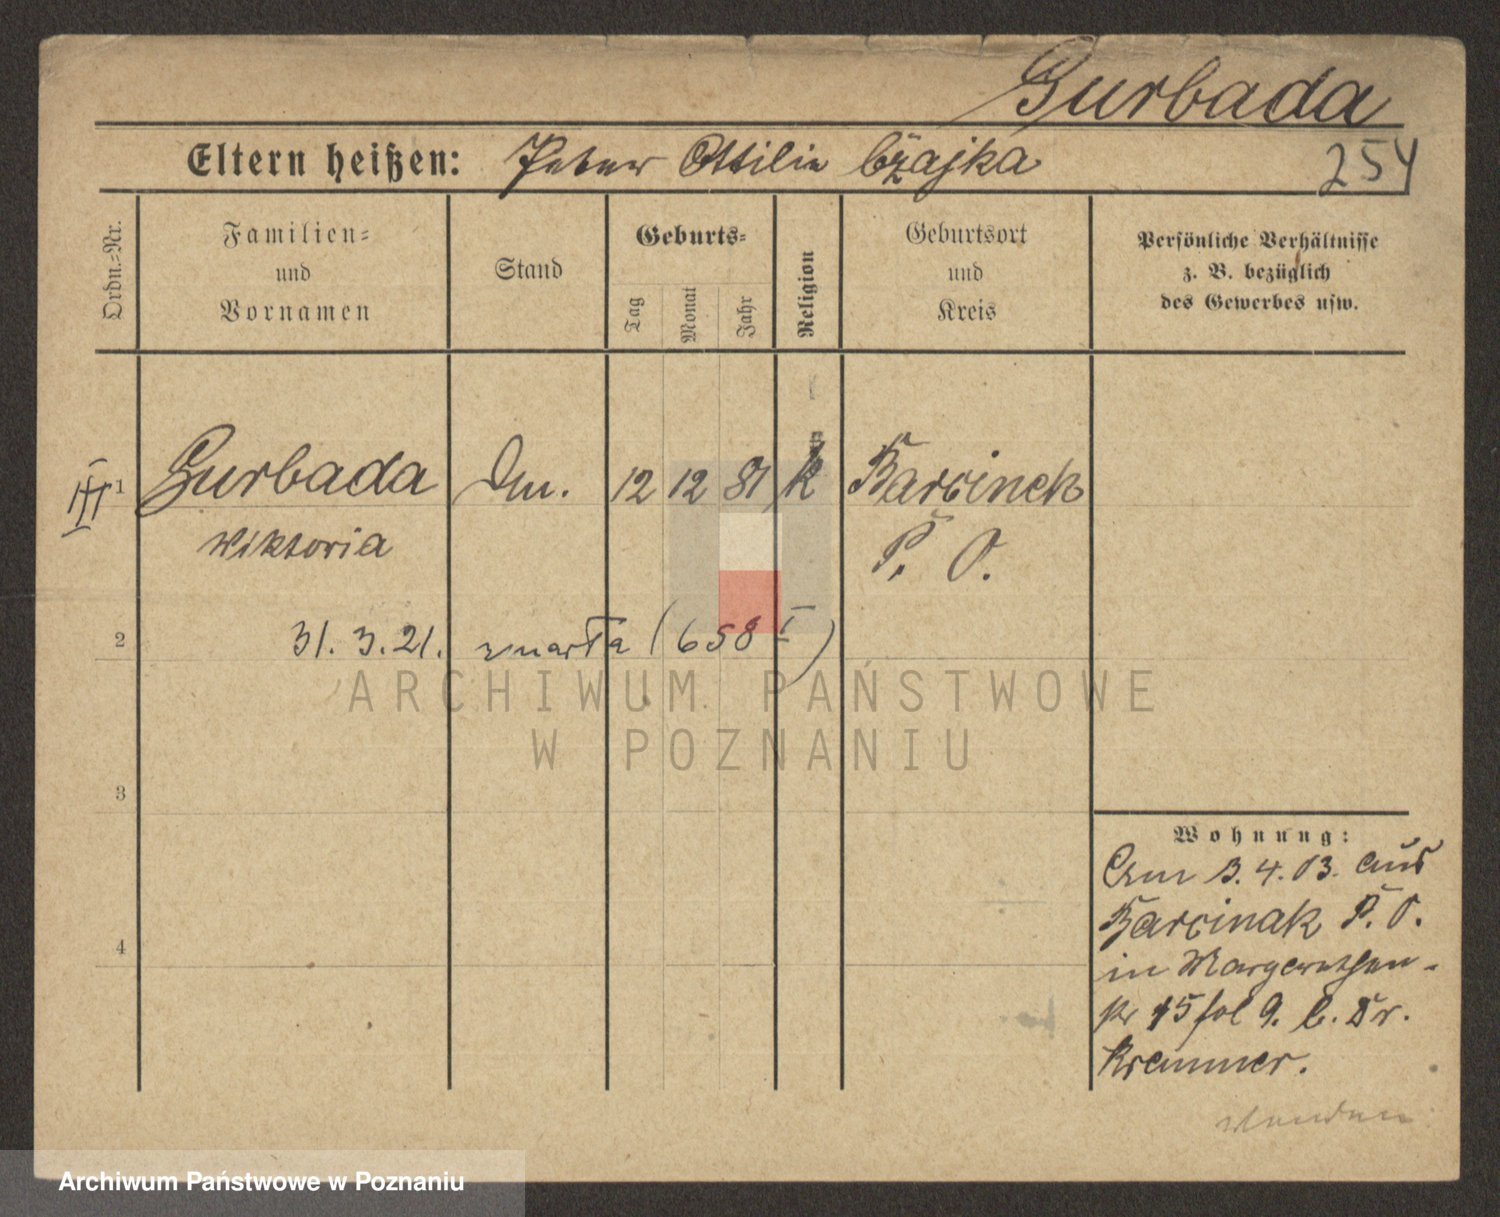 Gurbada
Eltern heißen: Peter Ottilie Czajka
254
Ordn.=Nr.
Familien=
und
Vornamen
Stand
Geburts=
Tag
Monat
Jahr
Religion
Geburtsort
und
Kreis
Persönliche Verhältnisse
z. B. bezüglich
des Gewerbes usw.
III
1 Gurbada Dm. 12 12 81 k Barcinek
Wiktoria P. O.
2 31. 3. 21. zmarła (658 I)
3
4
Wohnung:
Am 3. 4. 03. aus
Barcinak P. O.
in Margarethen-
str 15 fol 9. b. Dr.
Krammer.
wenden
ARCHIWUM PAŃSTWOWE
W POZNANIU
Archiwum Państwowe w Poznaniu